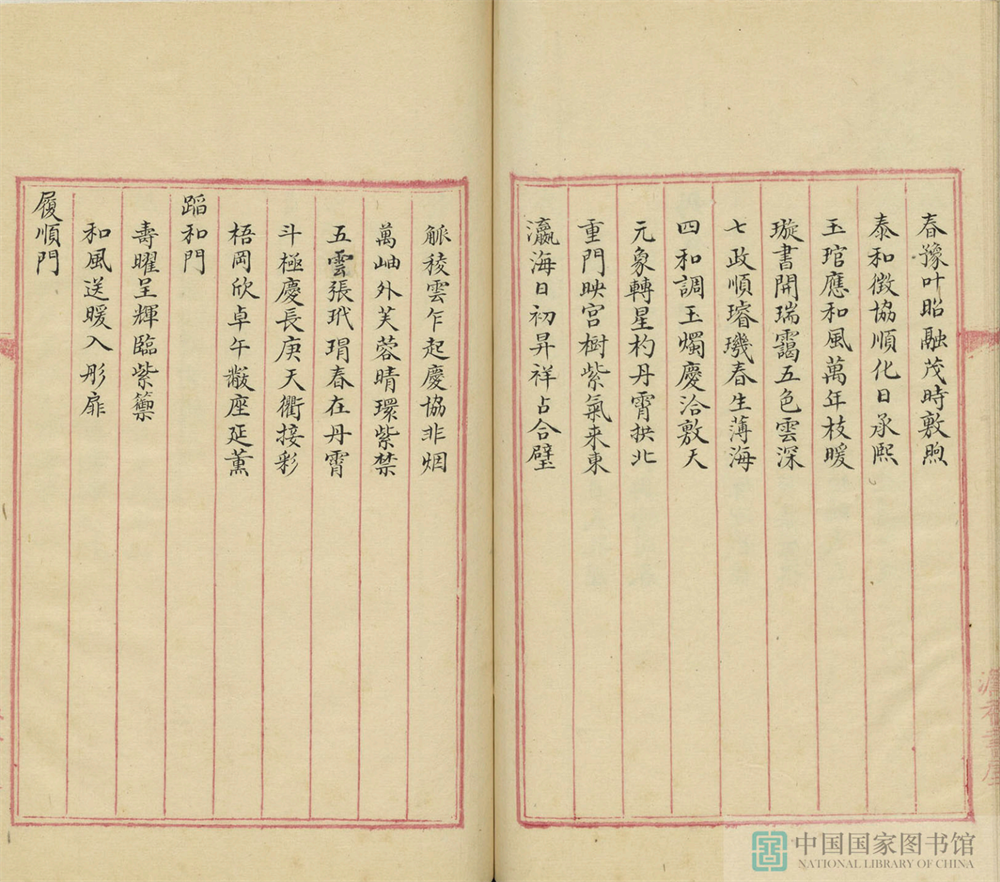 春豫叶昭融茂時敷煦
泰和徴協順化日承熙
玉琯應和風萬年枝暖
璇書開瑞靄五色雲深
七政順璿璣春生薄海
四和調玉燭慶洽敷天
元象轉星杓丹霄拱北
重門映宮樹紫氣来東
瀛海日初昇祥占合璧
觚稜雲乍起慶協非烟
萬岫外芙蓉晴環紫禁
五雲張玳瑁春在丹霄
斗極慶長庚天衢接彩
梧岡欣卓午黻座延薰
蹈和門
壽曜呈輝臨紫籞
和風送暖入彤扉
履順門
中国国家图书馆
NATIONAL LIBRARY OF CHINA